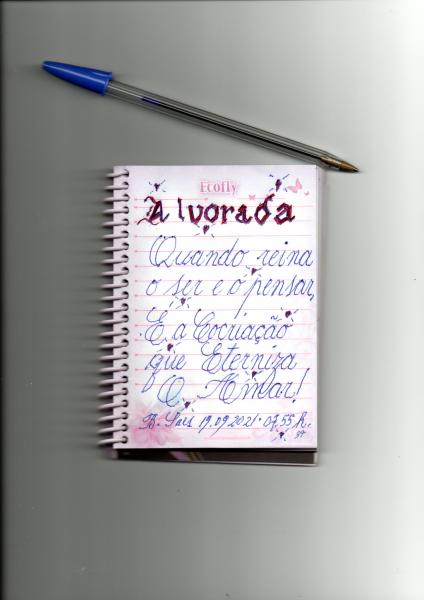 Ecofly
Alvorada
Quando reina
o ser e o pensar,
É a Cocriação
que Eterniza
O Amar!
19.09.2021. 07,55 h.